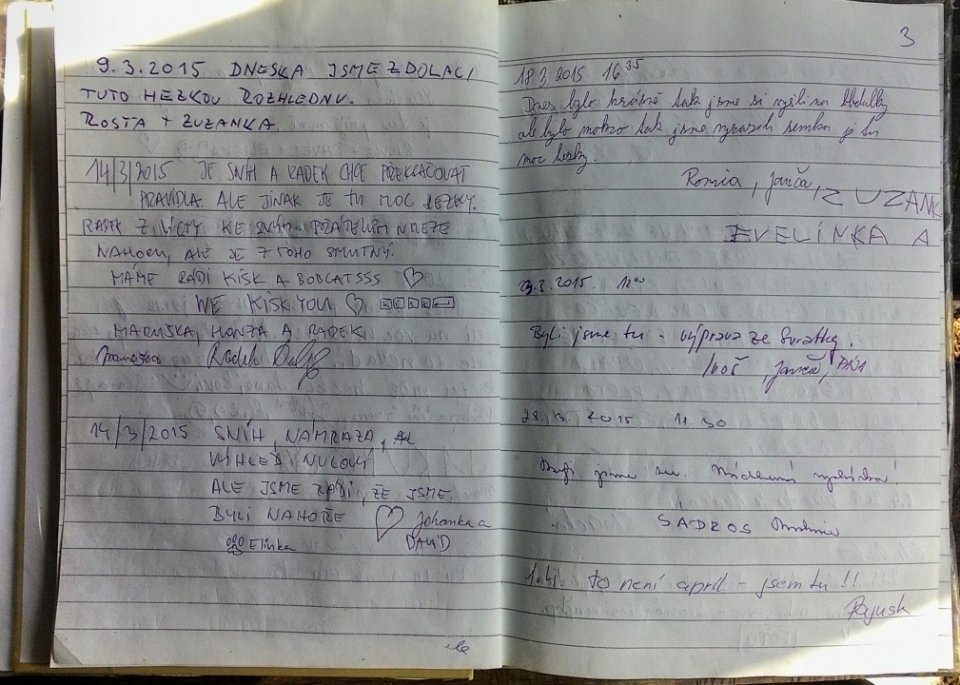 9.3.2015 DNESKA JSME ZDOLALI
TUTO HEZKOU ROZHLEDNU.
ROSŤA + ZUZANKA
14/3/2015 JE SNÍH A RADEK CHCE PŘEKRAČOVAT
PRAVIDLA. ALE JINAK JE TU MOC HEZKY.
RADEK Z ÚCTY KE SVÝM PŘÁTELŮM NELEZE
NAHORU, ALE JE Z TOHO SMUTNÝ.
MÁME RÁDI KISK A BOBCATSSS ♡
WE KISK YOU ♡
MARUŠKA, HONZA A RADEK
Radek
14/3/2015 SNÍH, NÁMRAZA,
VÝHLED NULOVÝ
ALE JSME RÁDI, ŽE JSME
BYLI NAHOŘE ♡ Johanka a
Elinka DAVID
3
18.3.2015 16 35
Dnes bylo krásně tak jsme si vyšli na
ale bylo mokro tak jsme vyrazili semka je tu
moc hezky.
Romča, Janča, ZUZANK
EVELÍNKA A
3.2015 11 00
Byli jsme tu - výprava ze Svratky.
Janča,
28. 3. 2015 11.30
Byli jsme tu. Nádherná vyhlídka!
SÁDROS
1.4. to není apríl - jsem tu !!